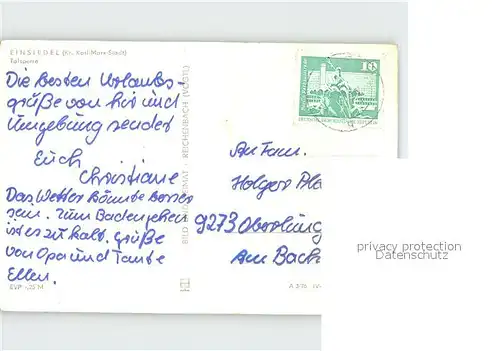 EINSIEDEL (Kr. Karl-Marx-Stadt)
Talsperre
Die besten Urlaubs-
grüße von hir und
Umgebung sendet
Euch
Christiane
Das Wetter könnte besser
sein. Zum Badengehen
ist es zu kalt. Grüße
von Opa und Tante
Ellen.
EVP -,25 M
BILD UND HEIMAT · REICHENBACH (VOGTL)
10
DEUTSCHE DEMOKRATISCHE REPUBLIK
An Fam.
Holger
9273 Oberlung
Am Bach
privacy protection
Datenschutz